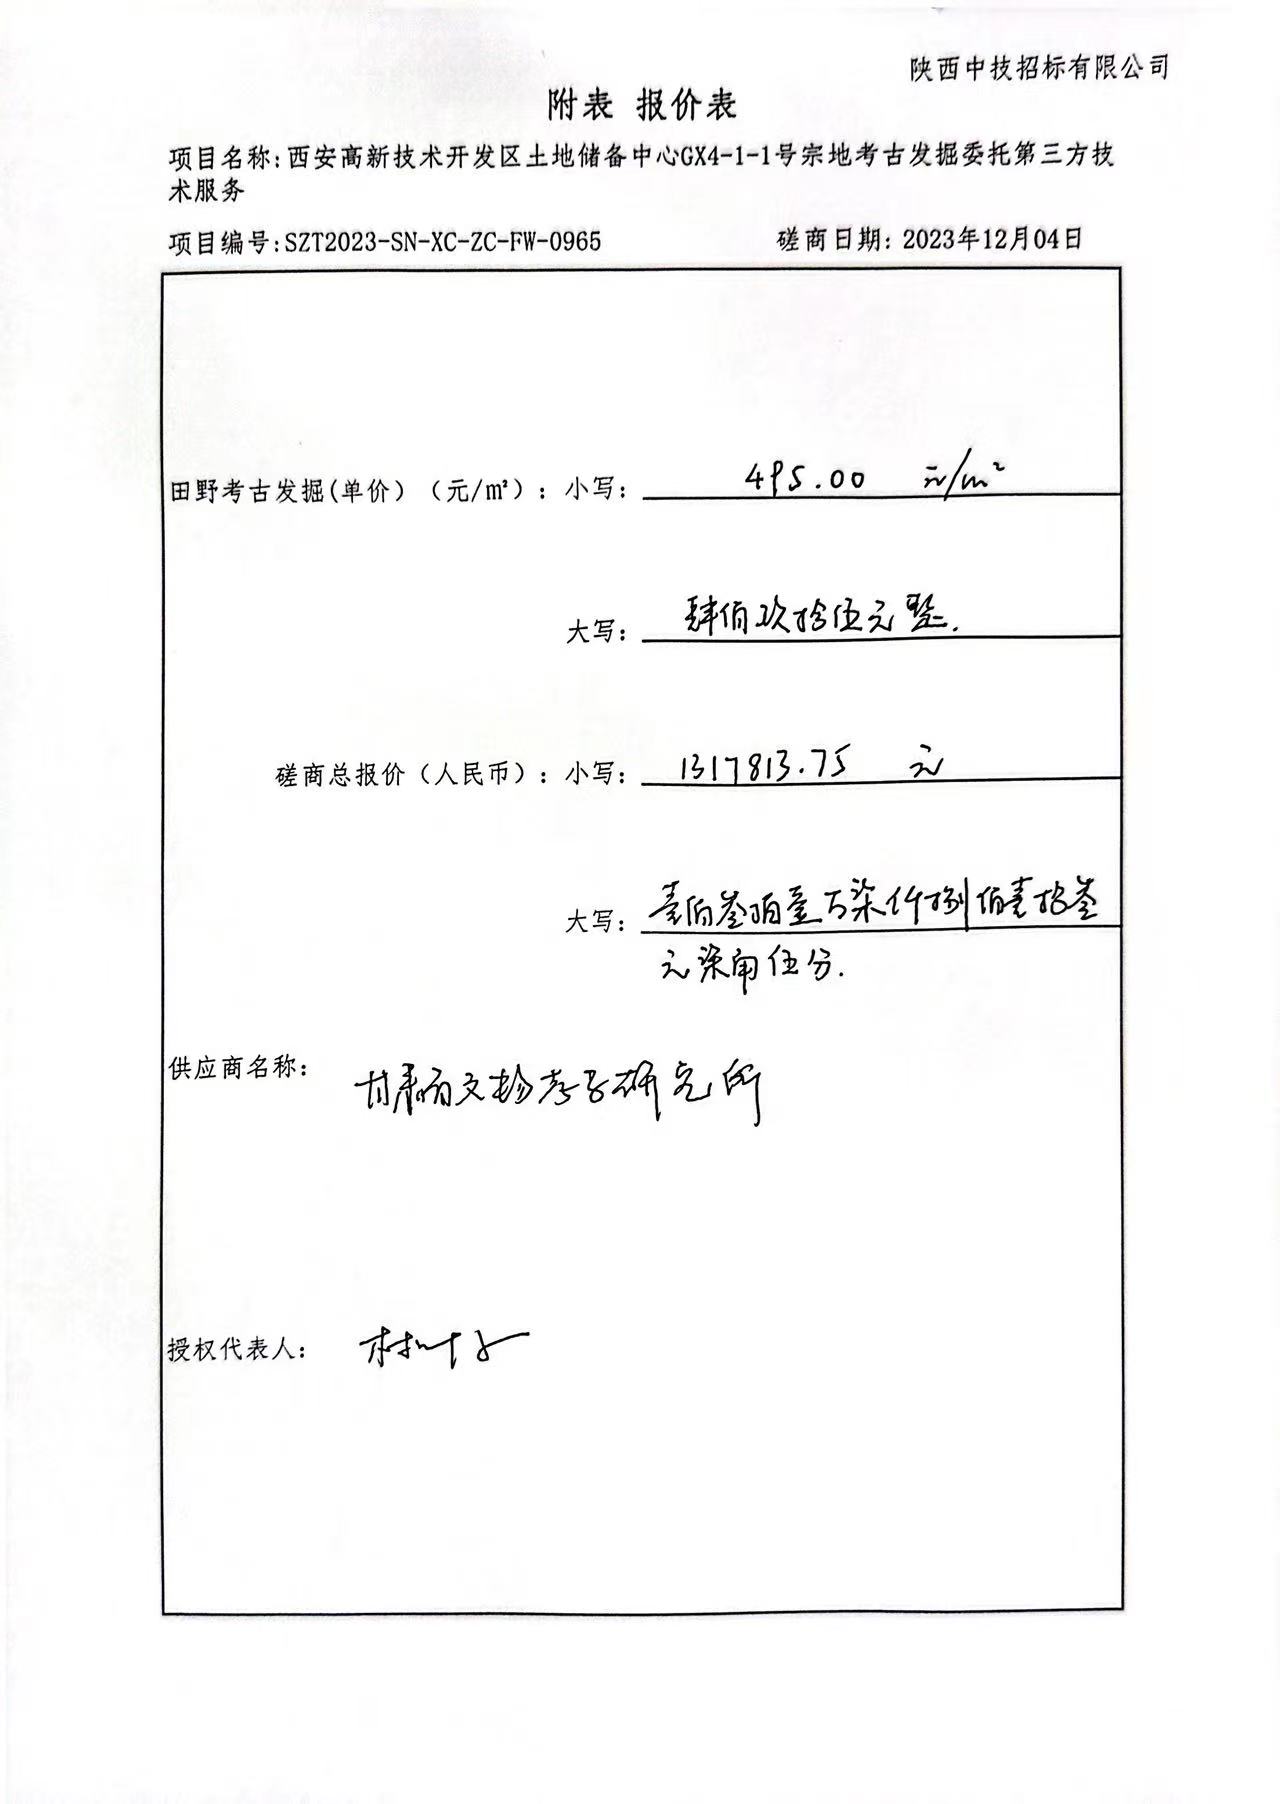 陕西中技招标有限公司
附表 报价表
项目名称:西安高新技术开发区土地储备中心GX4-1-1号宗地考古发掘委托第三方技
术服务
项目编号:SZT2023-SN-XC-ZC-FW-0965 磋商日期: 2023年12月04日
田野考古发掘(单价)(元/㎡): 小写: 495.00 元/m²
大写: 肆佰玖拾伍元整.
磋商总报价(人民币): 小写: 1317813.75 元
大写: 壹佰叁拾壹万柒仟捌佰壹拾叁
元柒角伍分.
供应商名称: 甘肃省文物考古研究所
授权代表人: